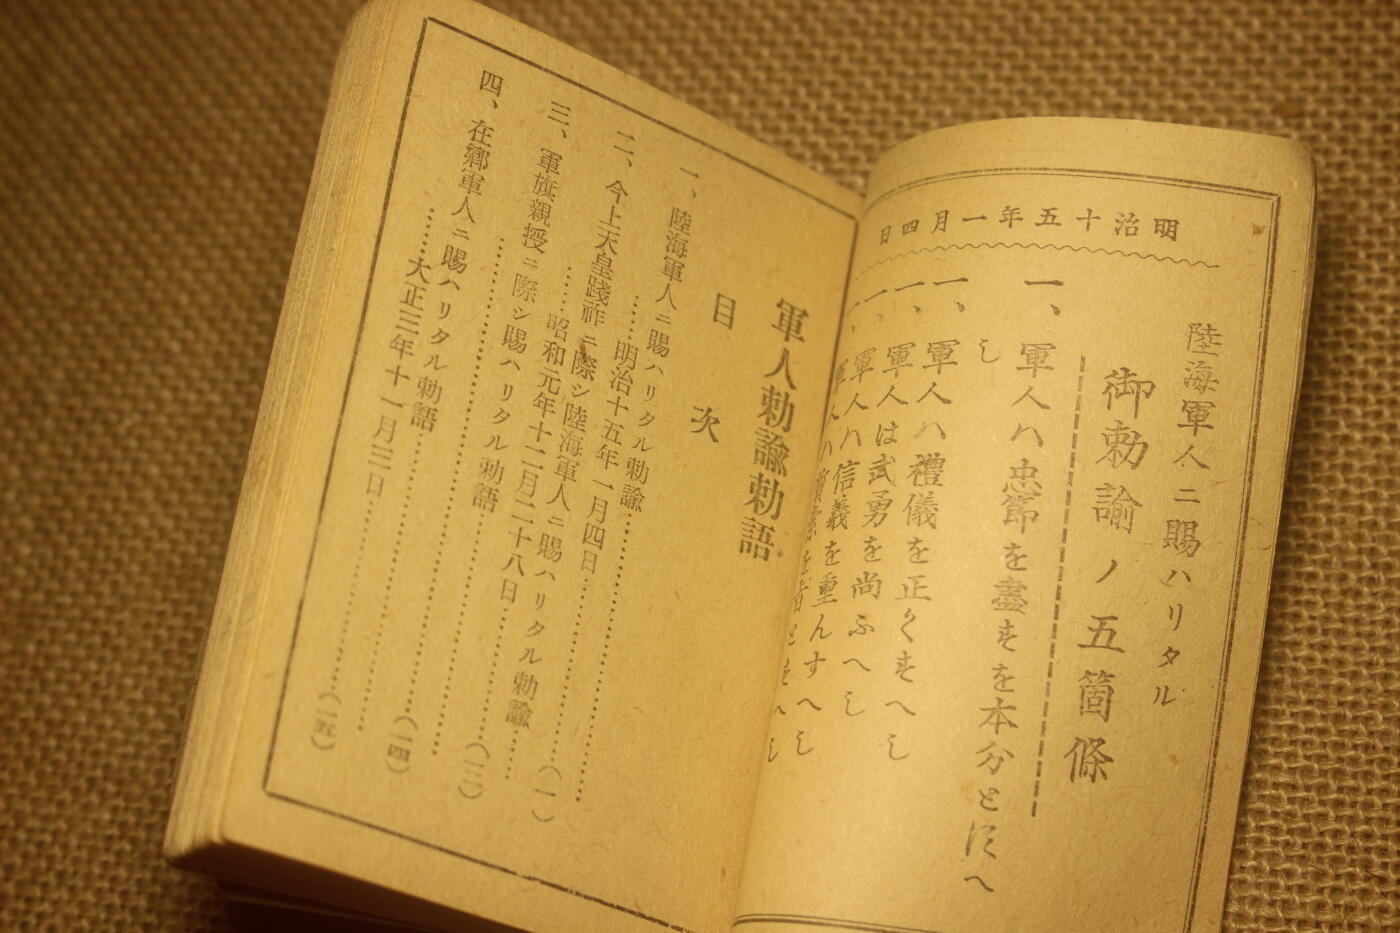 明治十五年一月四日
陸海軍人ニ賜ハリタル
御勅諭ノ五箇條
一、軍人ハ忠節を盡すを本分とすへ
し
一、軍人ハ禮儀を正くすへし
一、軍人は武勇を尚ふへし
一、軍人ハ信義を重んすへし
一、軍人ハ質素を旨とすへし
軍人勅諭勅語
目次
一、陸海軍人ニ賜ハリタル勅諭
……明治十五年一月四日……（一）
二、今上天皇踐祚ニ際シ陸海軍人ニ賜ハリタル勅諭
……昭和元年十二月二十八日……
三、軍旗親授ニ際シ賜ハリタル勅語……（一四）
四、在鄕軍人ニ賜ハリタル勅語
……大正三年十一月三日……（一五）